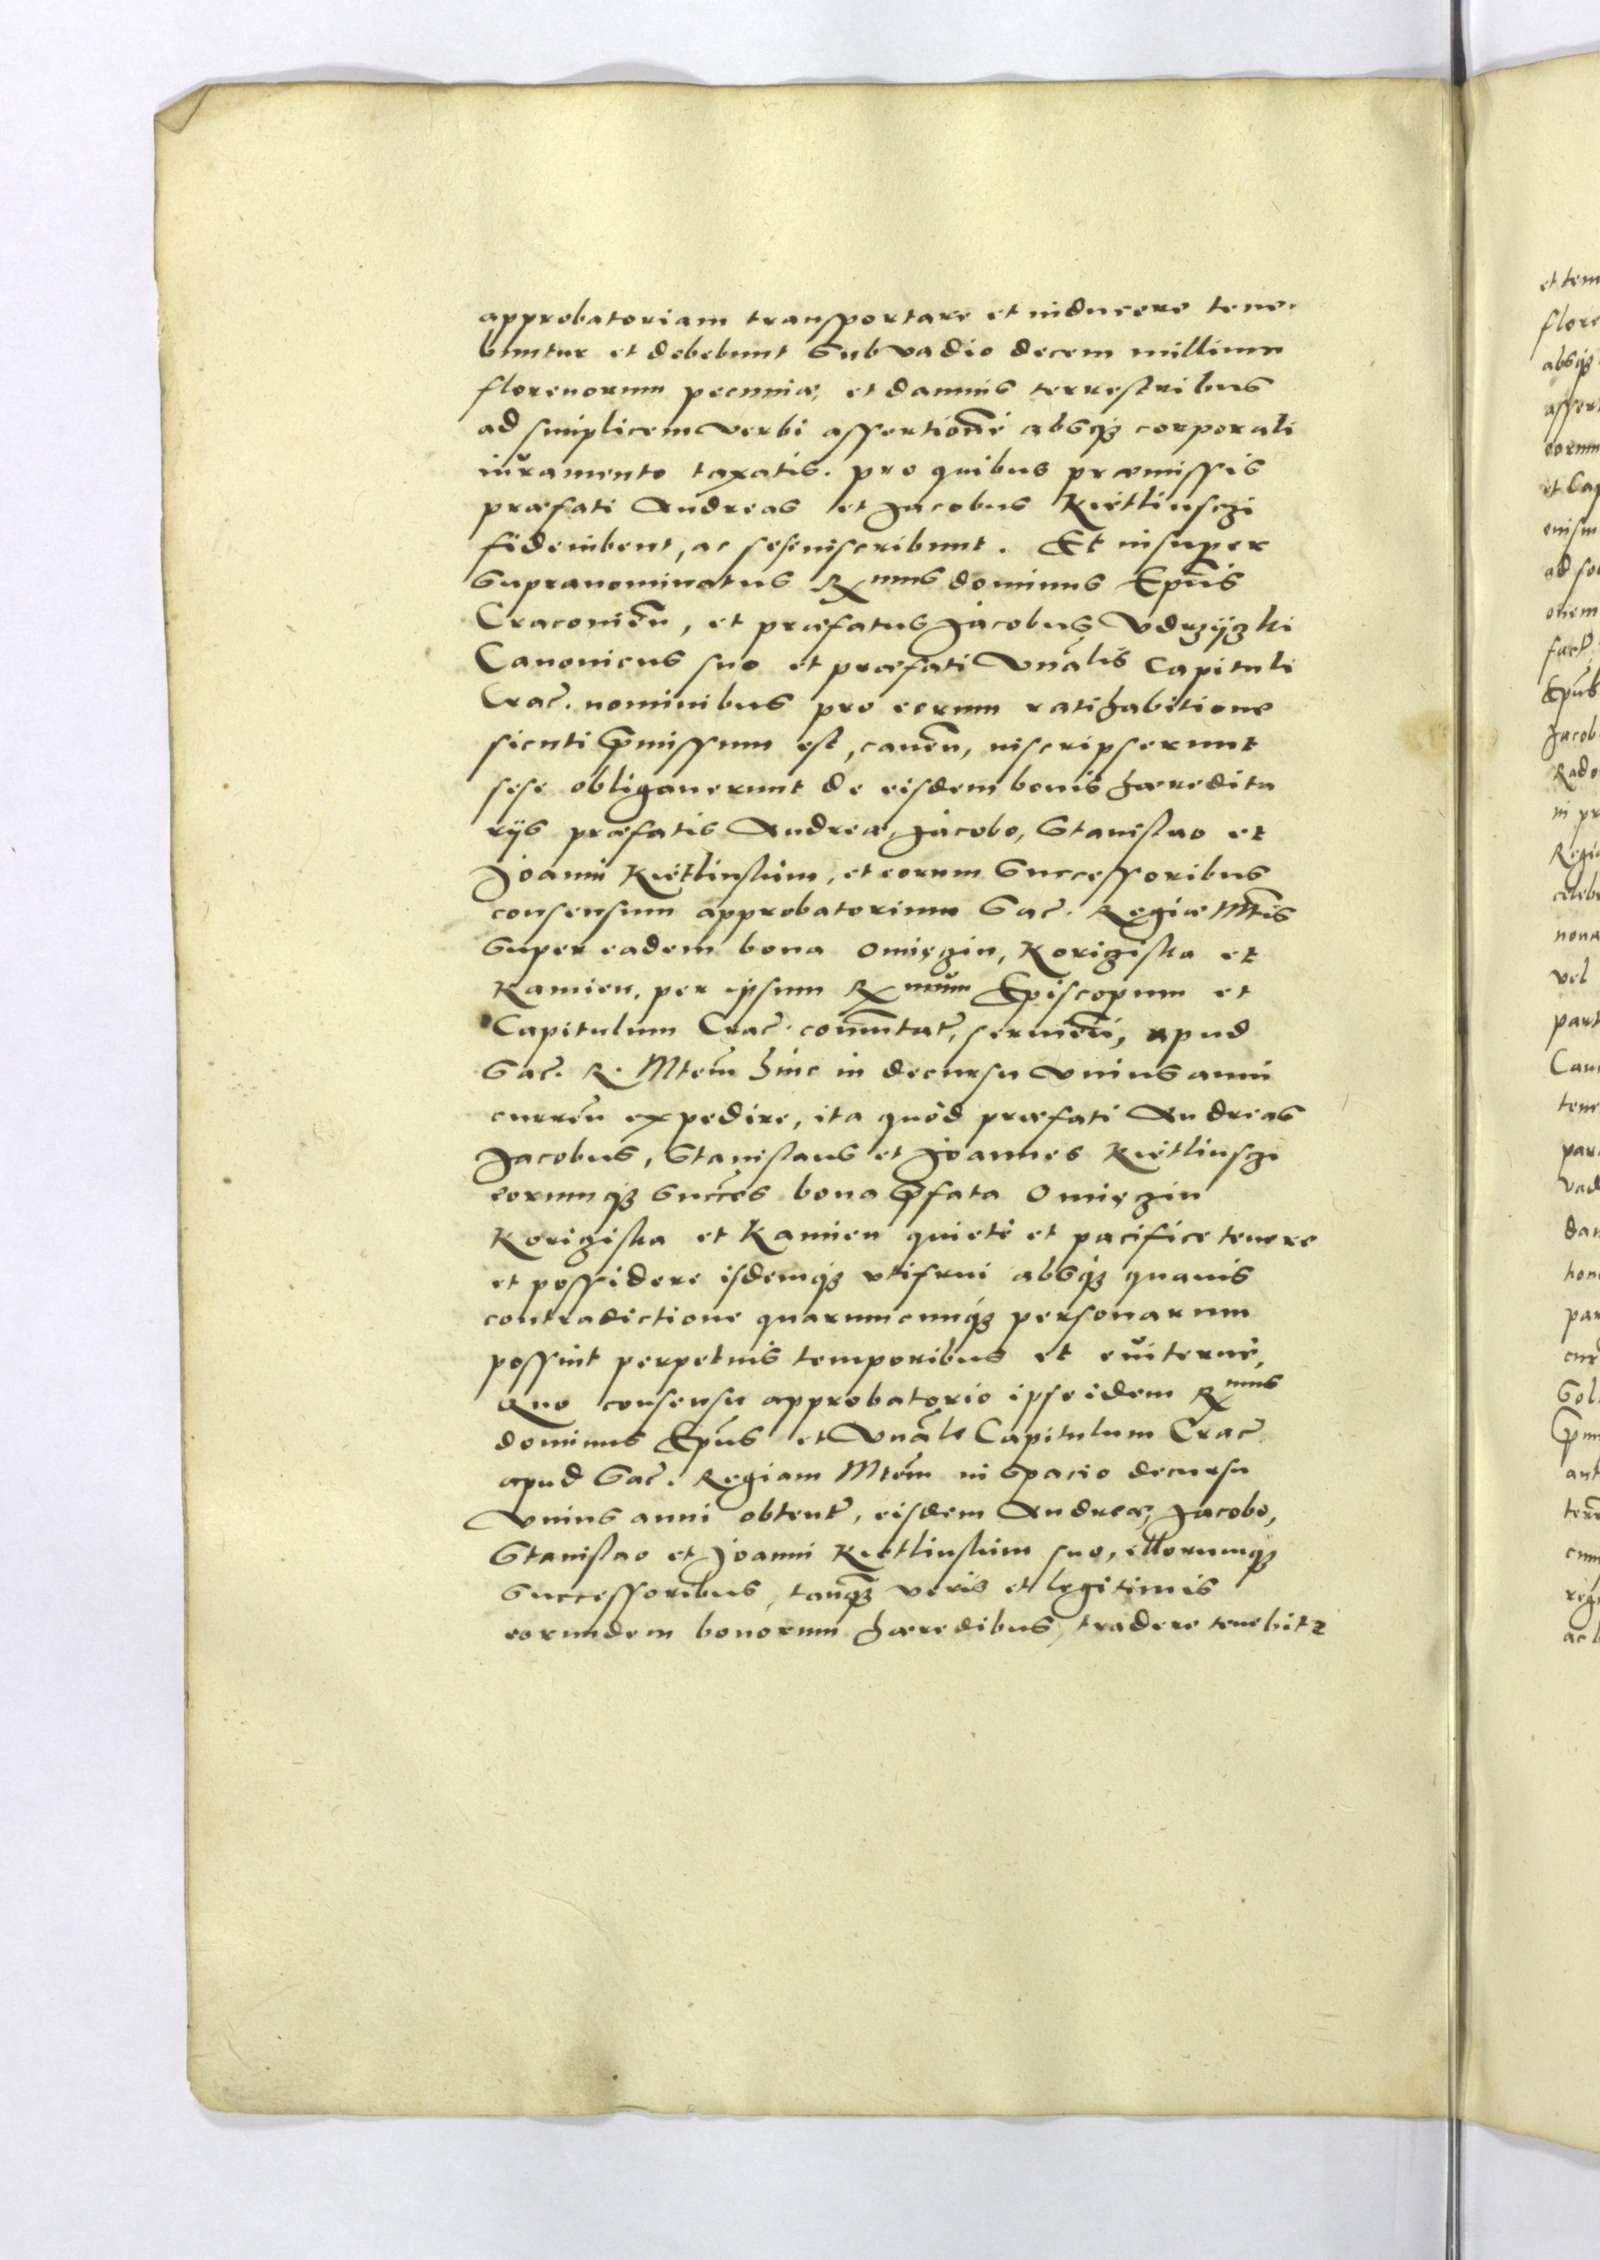 approbatoriam transportare et inducere tene-
buntur et debebunt sub vadio decem millium
florenorum pecuniæ, et damnis terrestribus
ad simplicem verbi assertionē absq3 corporali
iuramento taxatis. pro quibus præmissis
præfati Andreas et Jacobus Kietlinsczi
fideiubent, ac sese inscribunt. Et insuper
supranominatus Rmus dominus Epūs
Craconien̄, et præfatus Jacobus Vdrzÿczki
Canonicus suo et præfati Vnālis Capituli
Crac̄. nominibus pro eorum ratihabitione
sicuti p̄missum est, cauen̄, inscripserunt
sese obligauerunt de eisdem bonis hæredita
rijs præfatis Andreæ, Jacobo, Stanislao et
Joanni Kietlinskim, et eorum successoribus
consensum approbatorium Sac̄. Regiæ Mtis
super eadem bona Omięczin, Korzyska et
Kamien, per ipsum Rmum Episcopum et
Capitulum Crac̄. com̄utat̄, apud
Sac̄. R. Mtem̄ hinc in decursu vnius anni
curren̄ expedire, ita quòd præfati Andreas
Jacobus, Stanislaus et Joannes Kietlinsczi
eorumq3 succēs bona p̄fata Omięczin
Korzyska et Kamien quietè et pacificè tenere
et possidere isdemq3 vtifrui absq3 quauis
contradictione quarumcumq3 personarum
possint perpetuis temporibus et euiternè,
Quo consensu approbatorio ipse idem Rmus
dominus Epūs et Vnāle Capitulum Crac̄
apud Sac̄. Regiam Mtem̄ in spacio decursu
vnius anni obtent̄, eisdem Andreæ, Jacobo,
Stanislao et Joanni Kietlinskim suo, illorumq3
successoribus, tanq3 veris et legitimis
eorundem bonorum hæredibus, tradere tenebitr